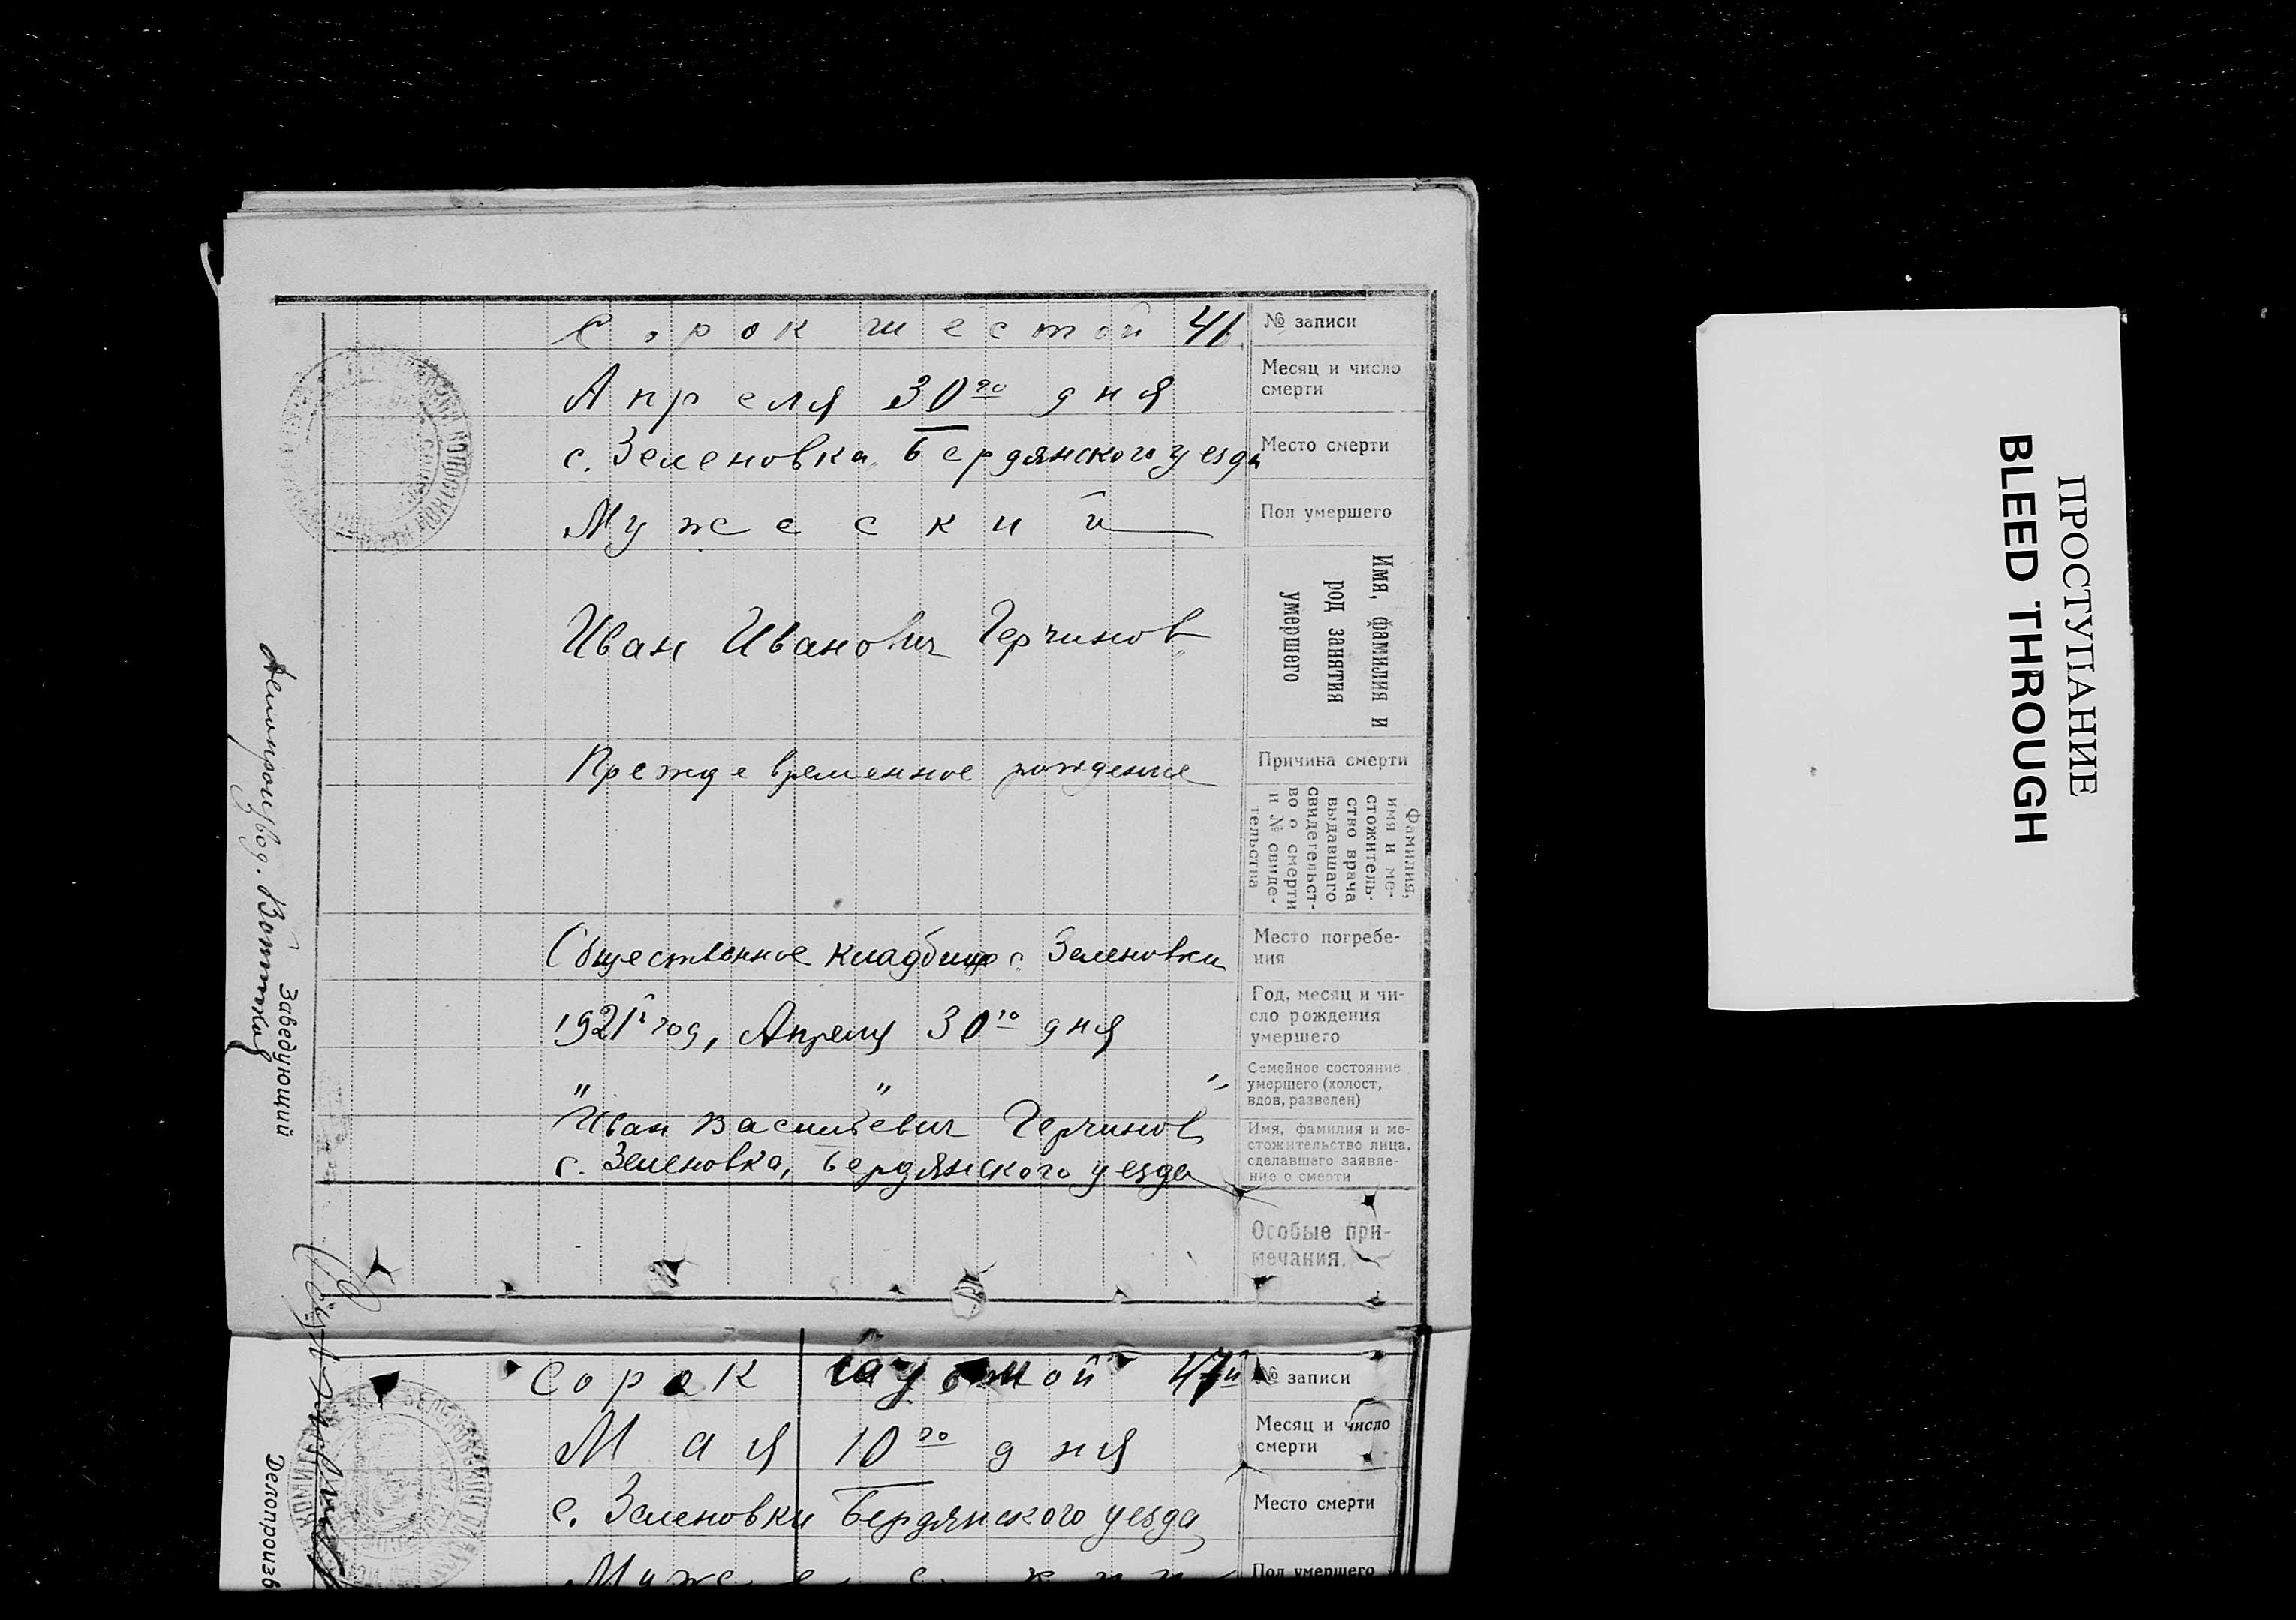 Сорок шестой 46 № записи
Апреля 30го дня Месяц и число
смерти
с. Зеленовка, Бердянского уезда Место смерти
Мужеский Пол умершего
Имя, фамилия и
род занятия
умершего
Иван Иванович Герчинов
Преждевременное рождение Причина смерти
Фамилия,
имя и ме-
стожитель-
ство врача
выдавшаго
свидетельст-
во о смерти
и № свиде-
тельства
Общественное кладбище с. Зеленовки Место погребе-
ния
1921й год, Апреля 30го дня Год, месяц и чи-
сло рождения
умершего
" " " Семейное состояние
умершего (холост,
вдов, разведен)
Иван Васильевич Герчинов Имя, фамилия и ме-
стожительство лица,
с. Зеленовка, Бердянского уезда сделавшего заявле-
ние о смерти
Особые при-
мечания.
Заведующий
Делопроизвод.
Сорок седьмой 47й № записи
Мая 10го дня Месяц и число
смерти
с. Зеленовки Бердянского уезда Место смерти
Мужеский Пол умершего
Делопроизв
ПРОСТУПАНИЕ
BLEED THROUGH